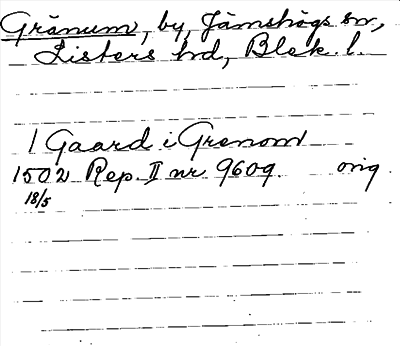 Gränum, by, Jämshögs sn,
Listers hd, Blek. l.
1 Gaard i Grenom
1502 Rep. II nr 9609 orig
18/5